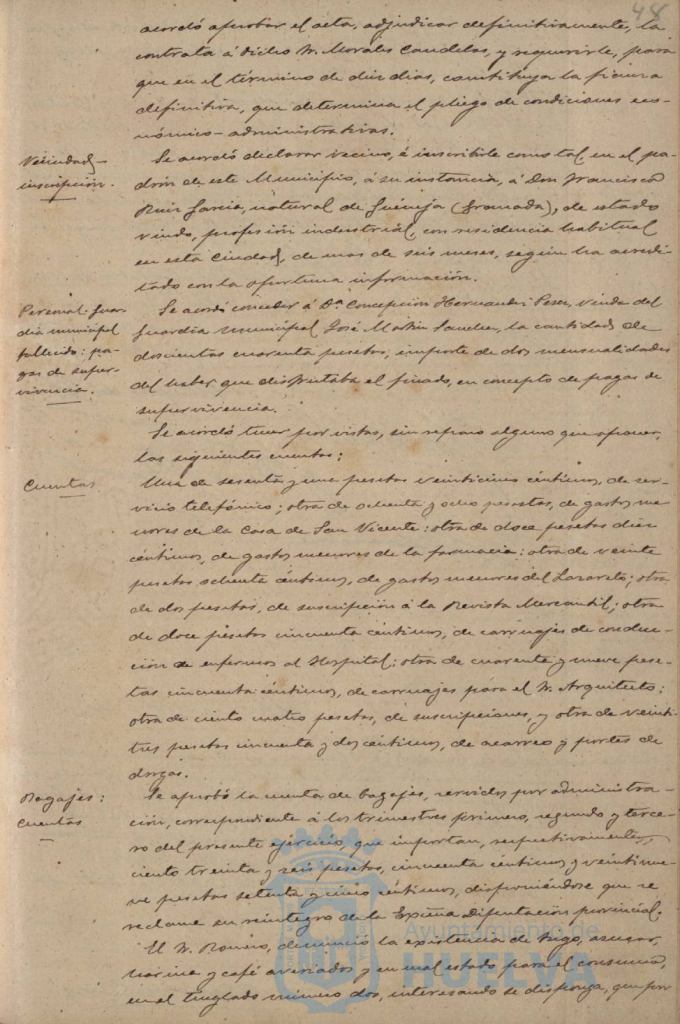 48
acordó aprobar el acta, adjudicar definitivamente, la
contrata á dicho Sr. Morales Candelas, y requerirle, para
que en el término de diez dias, constituya la fianza
definitiva, que determina el pliego de condiciones eco-
nómico-administrativas.
Vecindad
inscripción.
Se acordó declarar vecino, é inscribirle como tal, en el pa-
drón de este Municipio, á su instancia, á Don Francisco
Ruiz Garcia, natural de (Granada), de estado
viudo, profesión industrial, con residencia habitual
en esta Ciudad, de mas de seis meses, según ha acredi-
tado con la oportuna información.
Personal. Guar-
dia municipal
fallecido: pa-
gas de super-
vivencia.
Se acordó conceder á Dª Concepcion Hernandez Perez, viuda del
Guardia Municipal José Martin Sanchez, la cantidad de
doscientas cuarenta pesetas, importe de dos mensualidades
del haber que disfrutaba el finado, en concepto de pagas de
supervivencia.
Se acordó tener por vistas, sin reparo alguno que oponer,
las siguientes cuentas:
Cuentas
Una de sesenta y una pesetas veinticinco céntimos, de ser-
vicio telefónico; otra de ochenta y ocho pesetas, de gastos me-
nores de la Casa de San Vicente: otra de doce pesetas diez
céntimos, de gastos menores de la farmacia: otra de veinte
pesetas ochenta céntimos, de gastos menores del Lazareto; otra
de dos pesetas, de suscripción á la Revista Mercantil; otra
de doce pesetas cincuenta céntimos, de carruajes de conduc-
ción de enfermos al Hospital; otra de cuarenta y nueve pese-
tas cincuenta céntimos, de carruajes para el Sr. Arquitecto;
otra de ciento cuatro pesetas, de suscripciones, y otra de veinti-
tres pesetas cincuenta y dos céntimos, de acarreo y portes de
drogas.
Bagajes:
cuentas
Se aprobó la cuenta de bagajes, servidos por administra-
ción, correspondiente á los trimestres primero, segundo y terce-
ro del presente ejercicio, que importan, respectivamente,
ciento treinta y seis pesetas, cincuenta céntimos y veintinue-
ve pesetas setenta y cinco céntimos, disponiéndose que se
reclame su reintegro de la Excma Diputación provincial.
El Sr. Romero, denunció la existencia de trigo, azucar,
harina y café averiados y en mal estado para el consumo,
en el tinglado número dos, interesando se disponga, que por
Ayuntamiento de
HUELVA